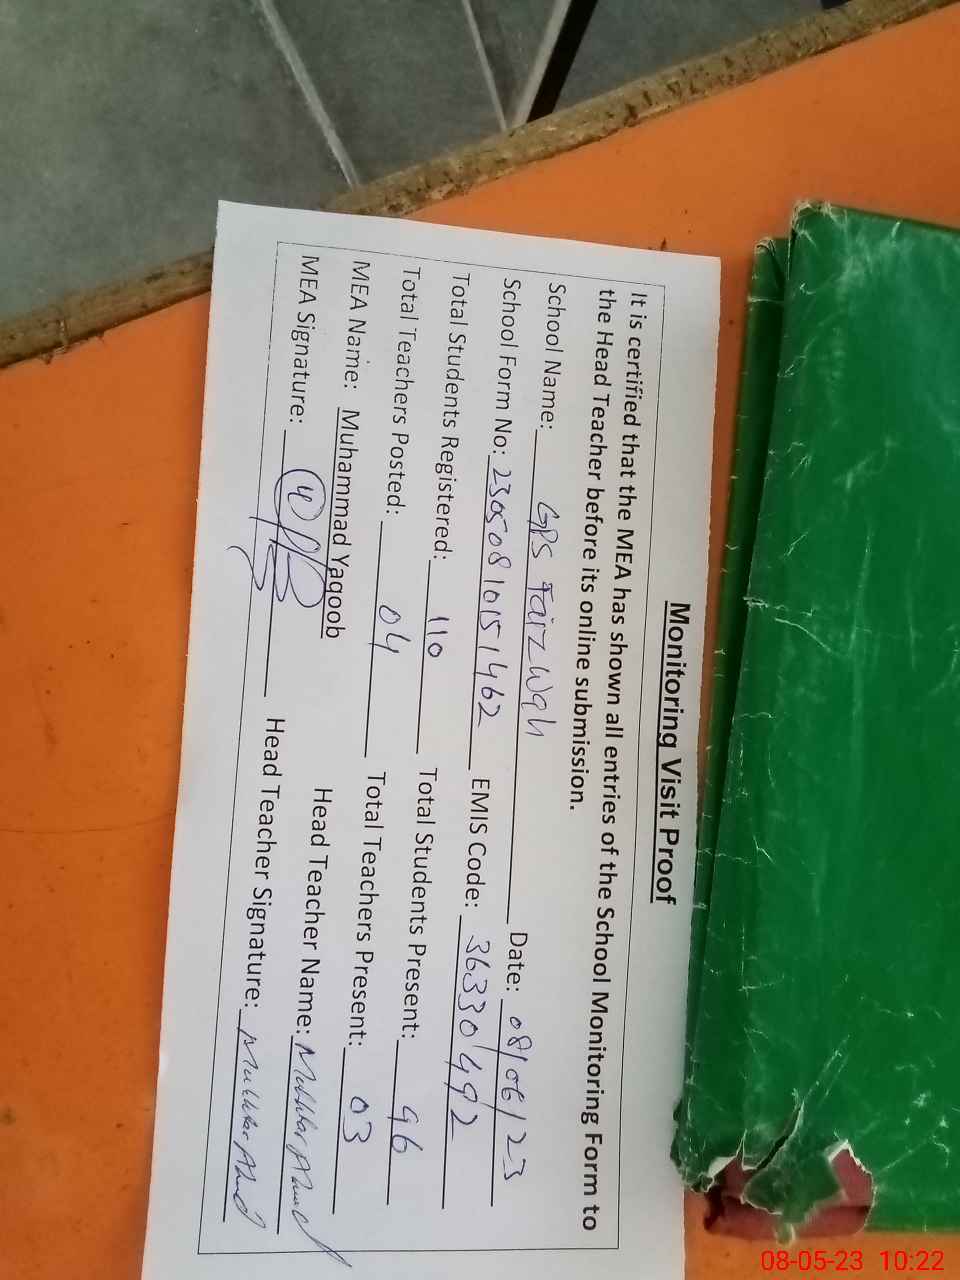 Monitoring Visit Proof
It is certified that the MEA has shown all entries of the School Monitoring Form to
the Head Teacher before its online submission.
School Name: GPS Faiz Wah Date: 08/06/23
School Form No: 23050810151462 EMIS Code: 36330492
Total Students Registered: 110 Total Students Present: 96
Total Teachers Posted: 04 Total Teachers Present: 03
MEA Name: Muhammad Yaqoob Head Teacher Name:
MEA Signature: Head Teacher Signature:
08-05-23 10:22